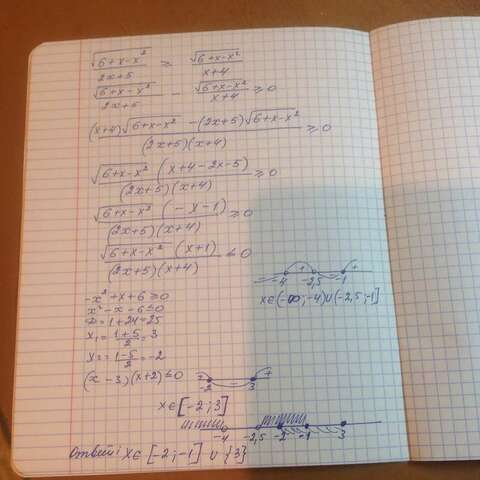 √(6+x-x²)/(2x+5) ≥ √(6+x-x²)/(x+4)
√(6+x-x²)/(2x+5) - √(6+x-x²)/(x+4) ≥ 0
((x+4)√(6+x-x²) - (2x+5)√(6+x-x²))/((2x+5)(x+4)) ≥ 0
√(6+x-x²) (x+4-2x-5)/((2x+5)(x+4)) ≥ 0
√(6+x-x²) (-x-1)/((2x+5)(x+4)) ≥ 0
√(6+x-x²) (x+1)/((2x+5)(x+4)) ≤ 0
- -4 + -2,5 - -1 +
x∈(-∞;-4)∪(-2,5;-1]
-x²+x+6≥0
x²-x-6≤0
D=1+24=25
x₁=(1+5)/2=3
x₂=(1-5)/2=-2
(x-3)(x+2)≤0
+ -2 - 3 +
x∈[-2;3]
-4 -2,5 -2 -1 3
Ответ: x∈[-2;-1]∪{3}